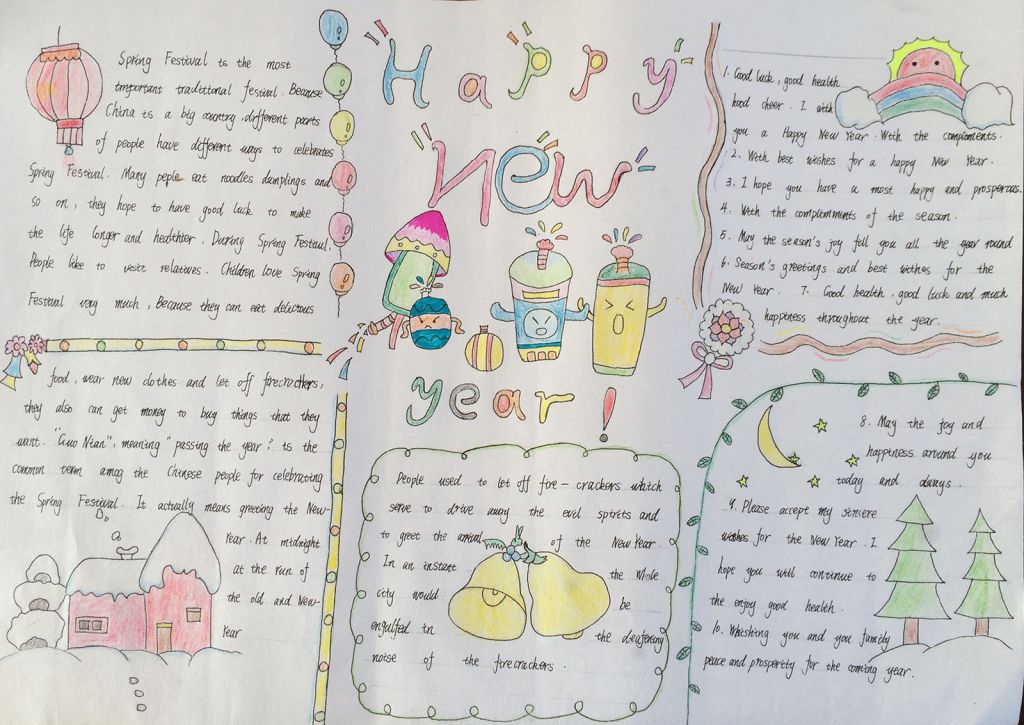 Happy
new
year!
Spring Festival is the most
important traditional festival. Because
China is a big country, different parts
of people have different ways to celebrates
Spring Festival. Many peple eat noodles dumplings and
so on, they hope to have good luck to make
the life longer and healthier. During Spring Festival,
People like to visit relatives. Children love Spring
Festival very much, Because they can eat delicious
food, wear new clothes and let off firecrackers,
they also can get money to buy things that they
want. "Guo Nian", meaning "passing the year", is the
common term amog the Chinese people for celebrating
the Spring Festival. It actually means greeting the New-
Year. At midnight
at the run of
the old and New-
Year
People used to let off fire-crackers watch
serve to drive away the evil spirits and
to greet the arrival of the New Year.
In an instant the whole
city would be
engulfed in the deafening
noise of the firecrackers.
1. Good luck, good health,
hood cheer. I with
you a Happy New Year. With the compliments.
2. With best wishes for a happy New Year.
3. I hope you have a most happy and prosperous.
4. With the complomments of the season.
5. May the season's joy fill you all the year round
6. Season's greetings and best withes for the
New Year. 7. Good health, good luck and much
happiness throughout the year.
8. May the joy and
happiness around you
today and always.
9. Please accept my sincere
wishes for the New Year. I
hope you will continue to
the enjoy good health.
10. Whishing you and you family
peace and prosperity for the coming year.